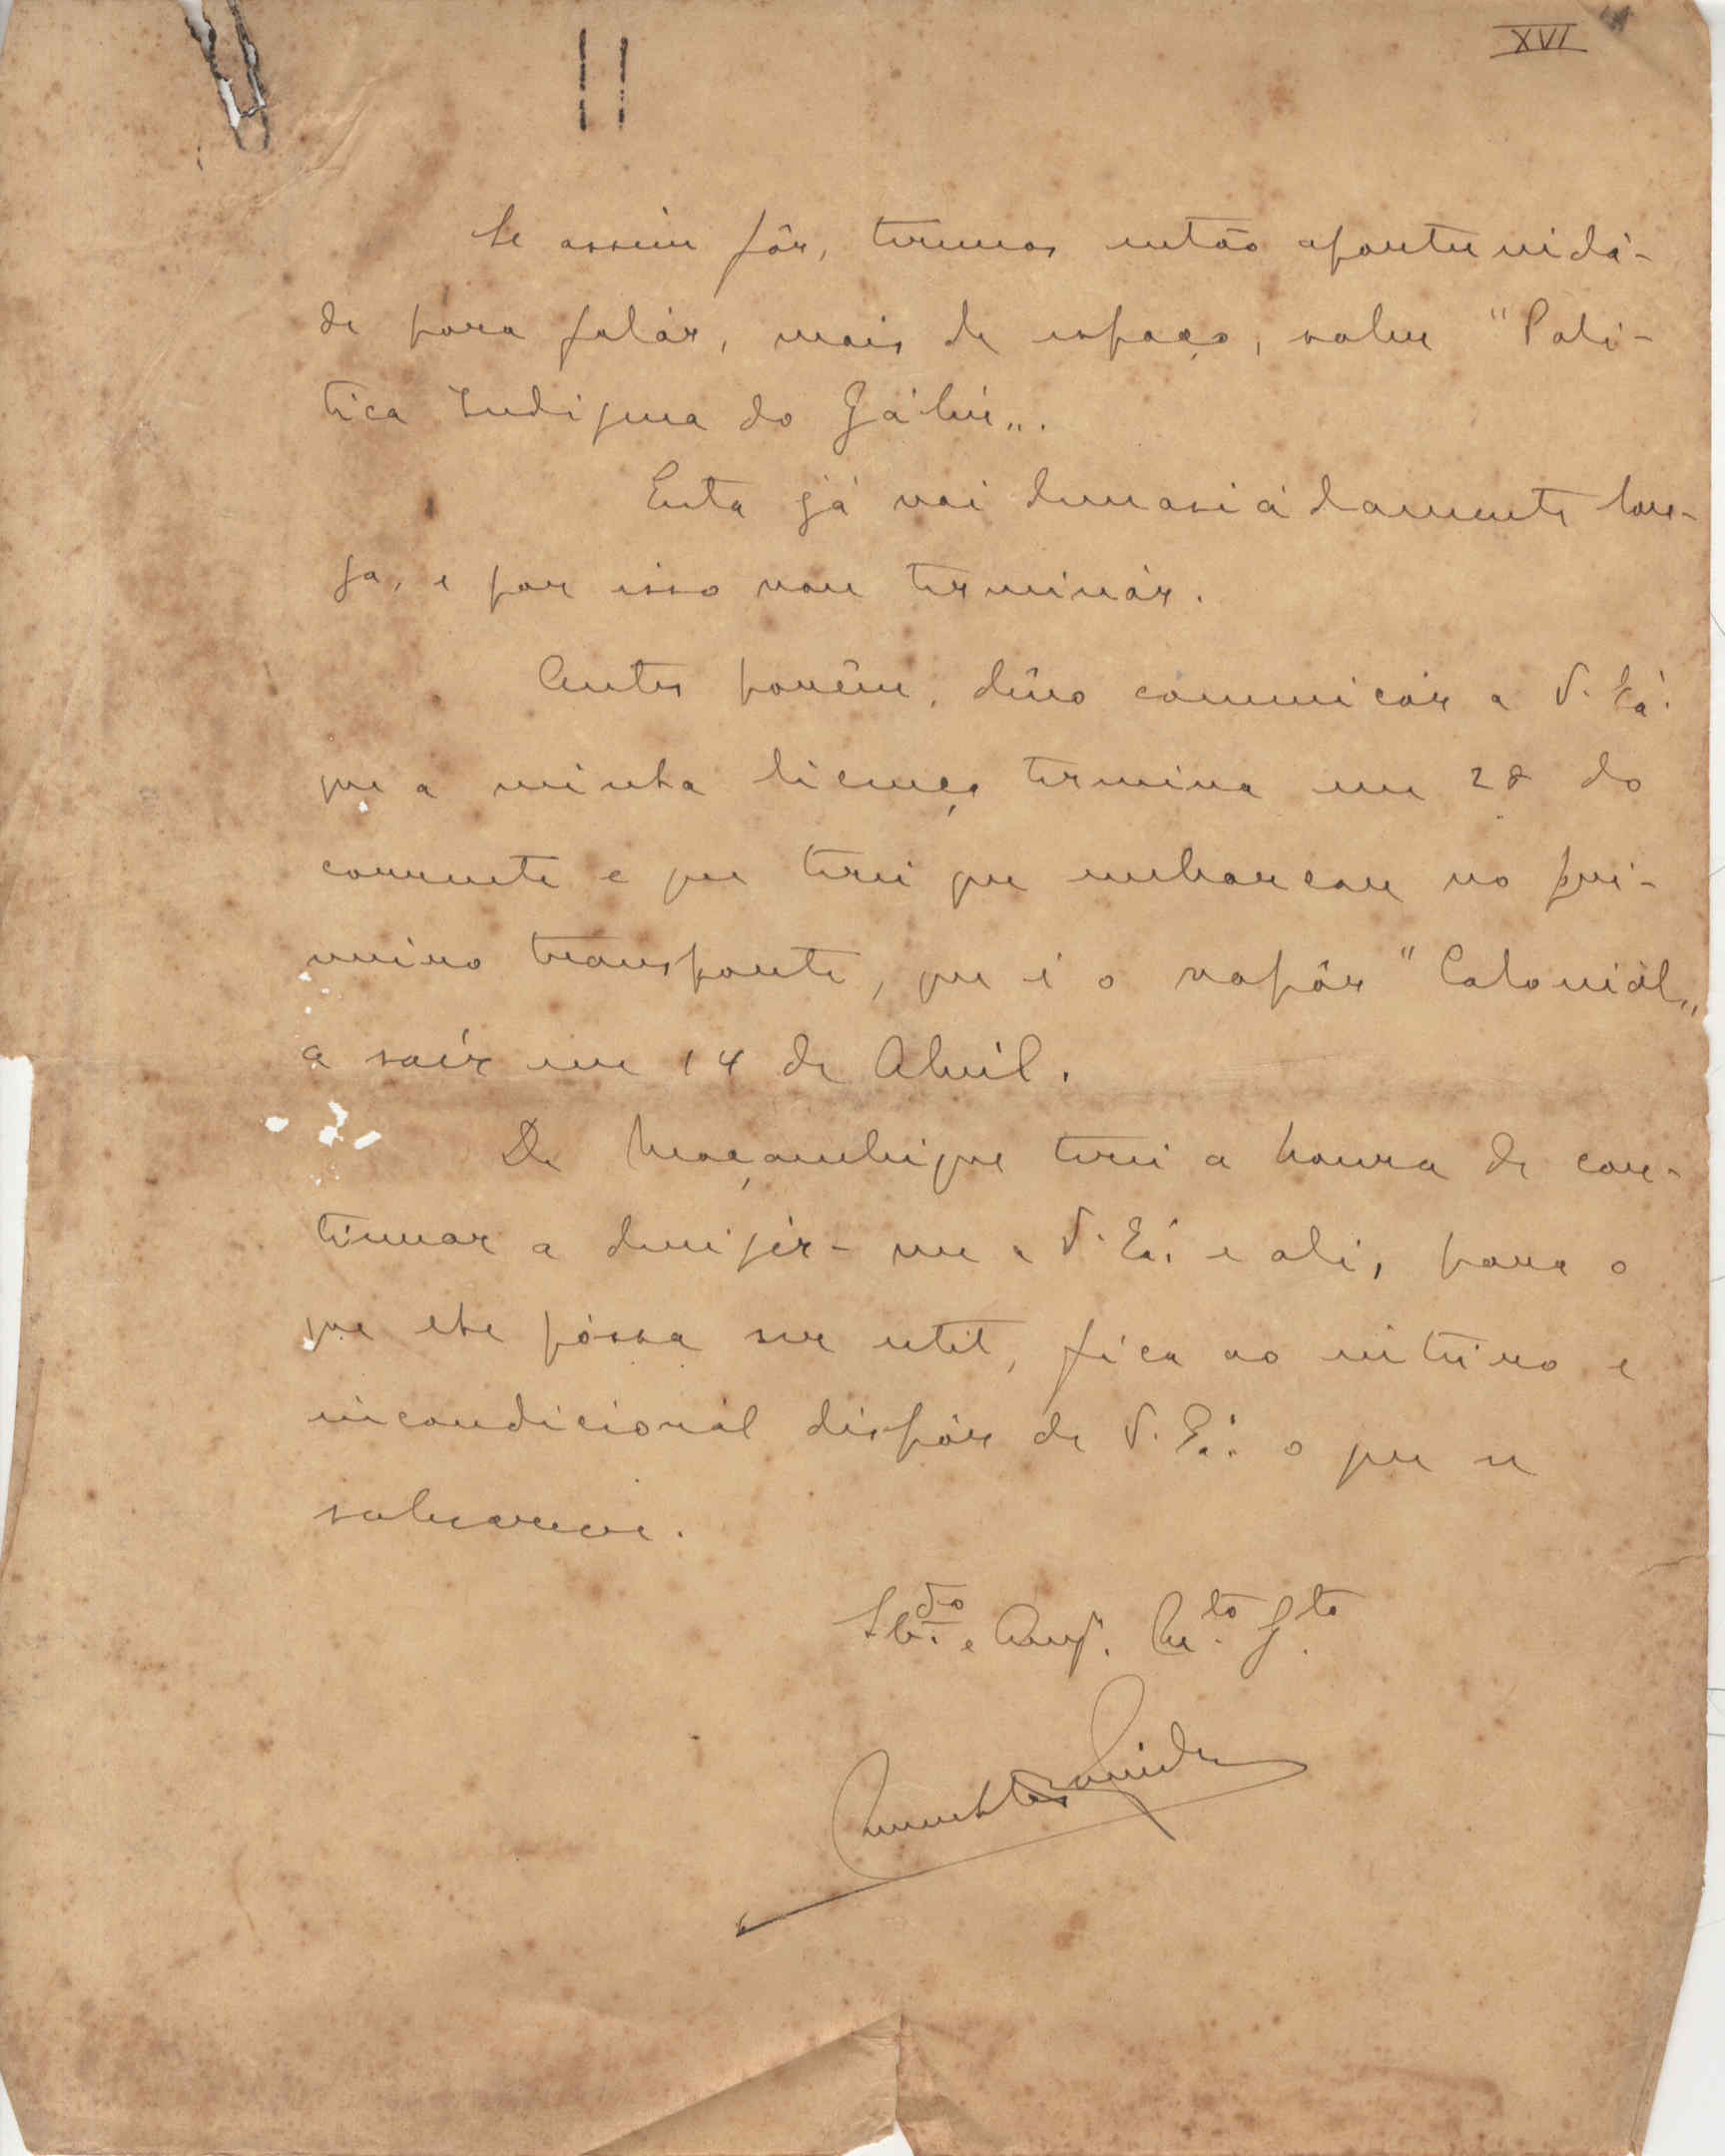 XVI
Se assim fôr, teremos então oportunidá-
de para falár, mais de espaço, sobre "Poli-
tica Indigena do
Esta já vai demasiádamente lon-
ga, e por isso vou terminár.
Antes porêm, devo comunicár a V. Exá.
que a minha licença termina em 28 do
corrente e que terei que embarcar no pri-
meiro transporte, que é o vapôr "Coloniál„
a saír em 14 de Abril.
De Moçambique terei a honra de con-
tinuar a dirigir-me a V. Exá. e ali, para o
que lhe póssa ser util, fica ao inteiro e
incondicionál dispôr de V. Exá. o que se
subscreve.